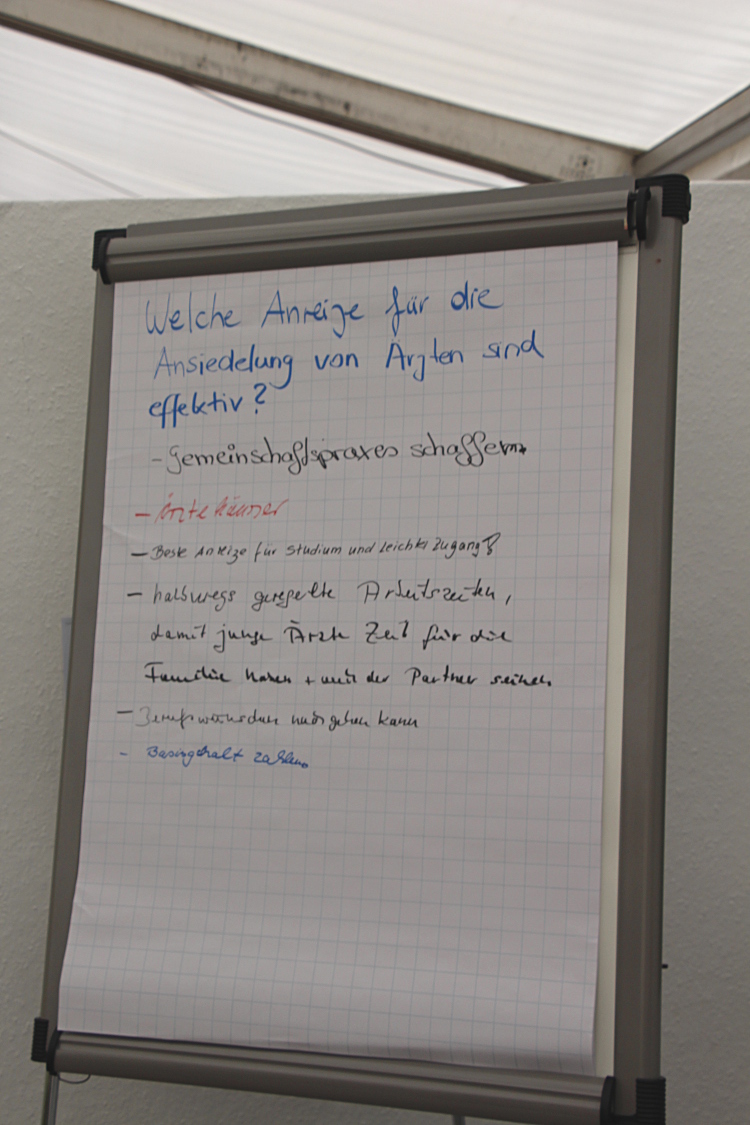 Welche Anreize für die
Ansiedelung von Ärzten sind
effektiv?
- Gemeinschaftspraxes schaffen
- Ärztehäuser
- Beste Anreize für Studium und leichter Zugang
- halbwegs geregelte Arbeitszeiten,
damit junge Ärzte Zeit für die
Familie haben + und der Partner seinen
- Berufswünschen nachgehen kann
- Basisgehalt zahlen